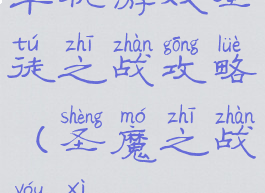 单机游戏圣
tú zhī zhàn gōng lüè
徒之战攻略
shèng mó zhī zhàn
(圣魔之战
yóu xì